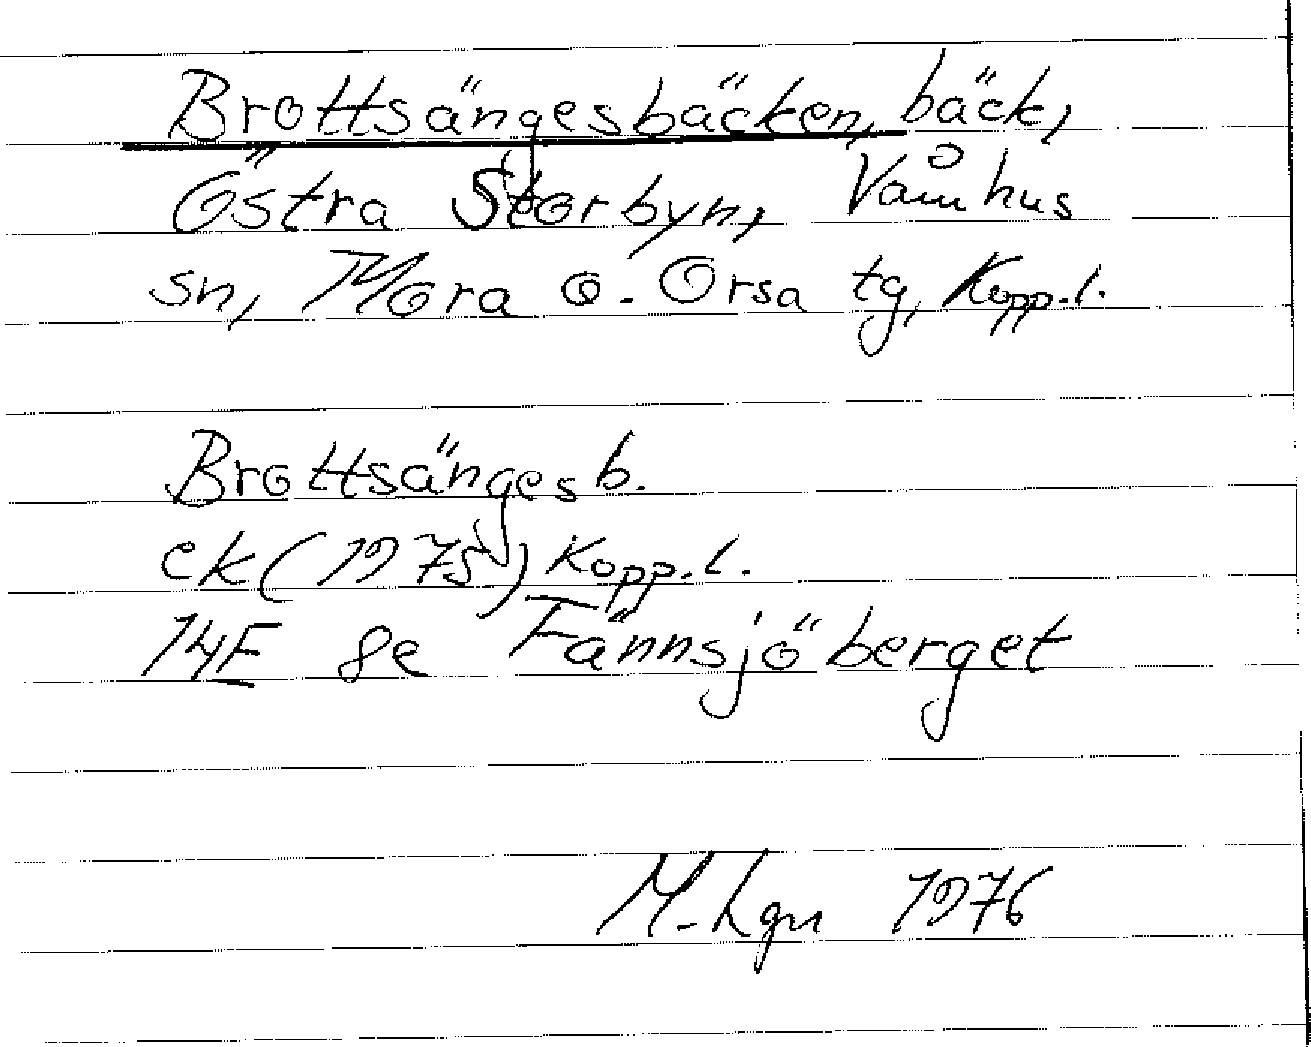 Brottsängesbäcken, bäck,
Östra Storbyn, Våmhus
sn, Mora o. Orsa tg, Kopp.l.
Brottsängesb.
ek (1975) Kopp.l.
14E 8e Fännsjöberget
M-Lgn 1976